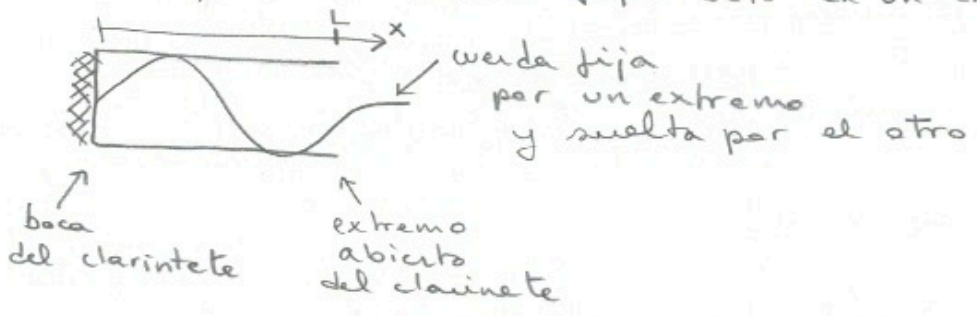 L
x
cuerda fija
por un extremo
y suelta por el otro
boca
del clarintete
extremo
abierto
del clarinete